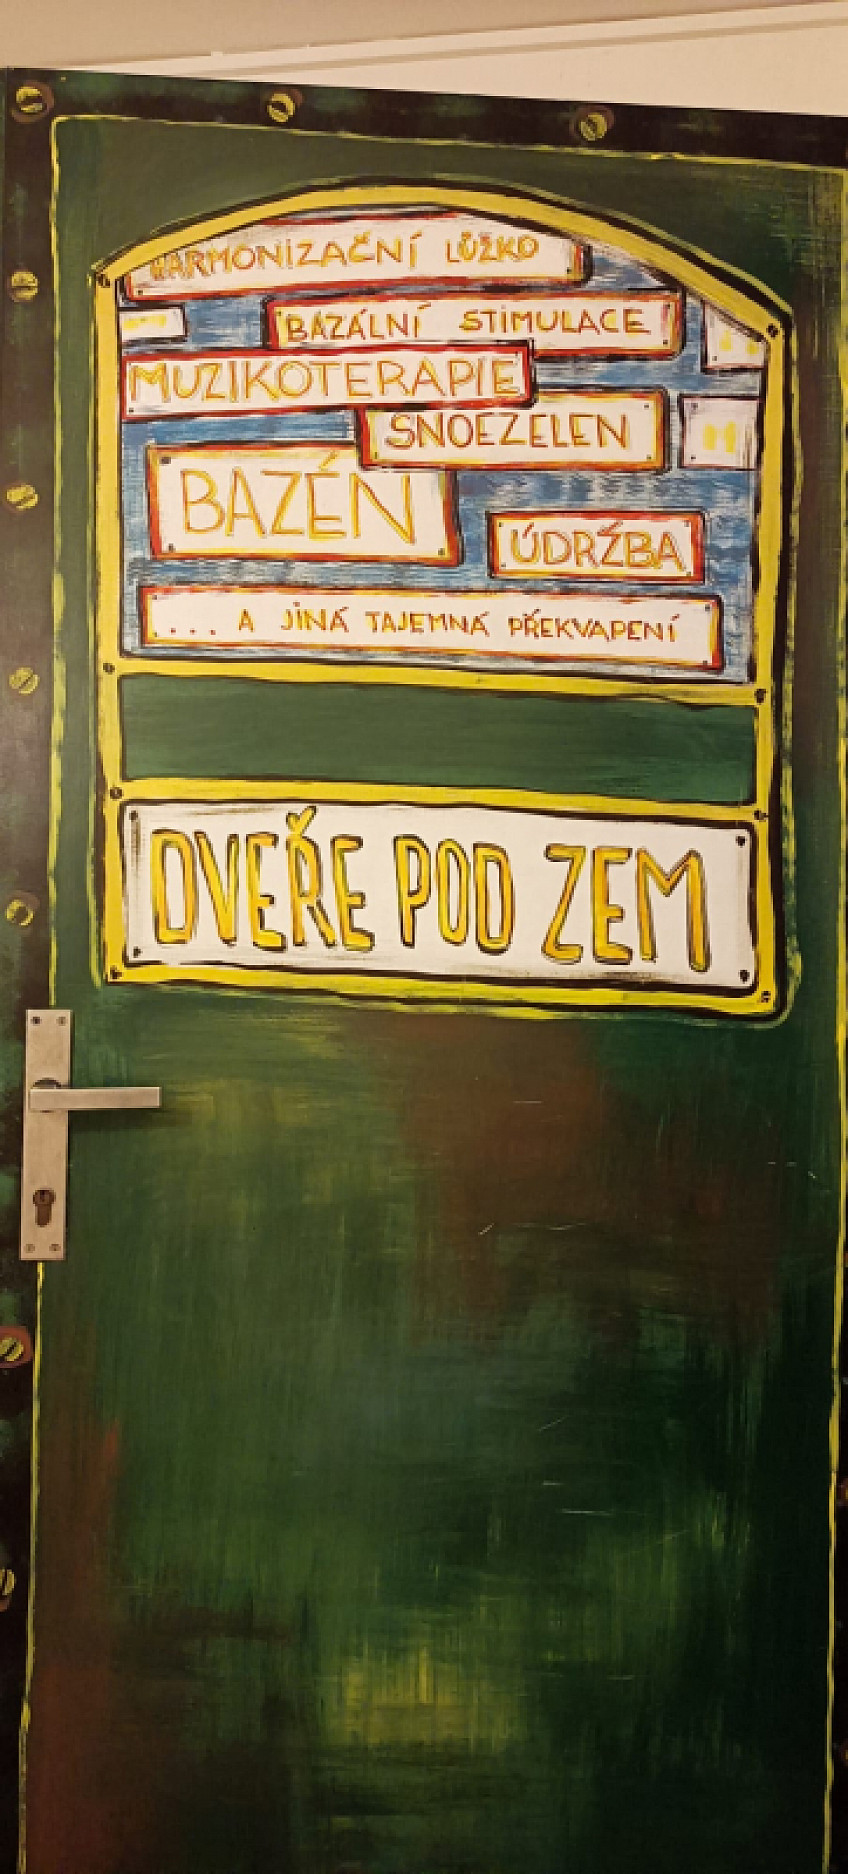 HARMONIZAČNÍ LŮŽKO
BAZÁLNÍ STIMULACE
MUZIKOTERAPIE
SNOEZELEN
BAZÉN
ÚDRŽBA
... A JINÁ TAJEMNÁ PŘEKVAPENÍ
DVEŘE POD ZEM